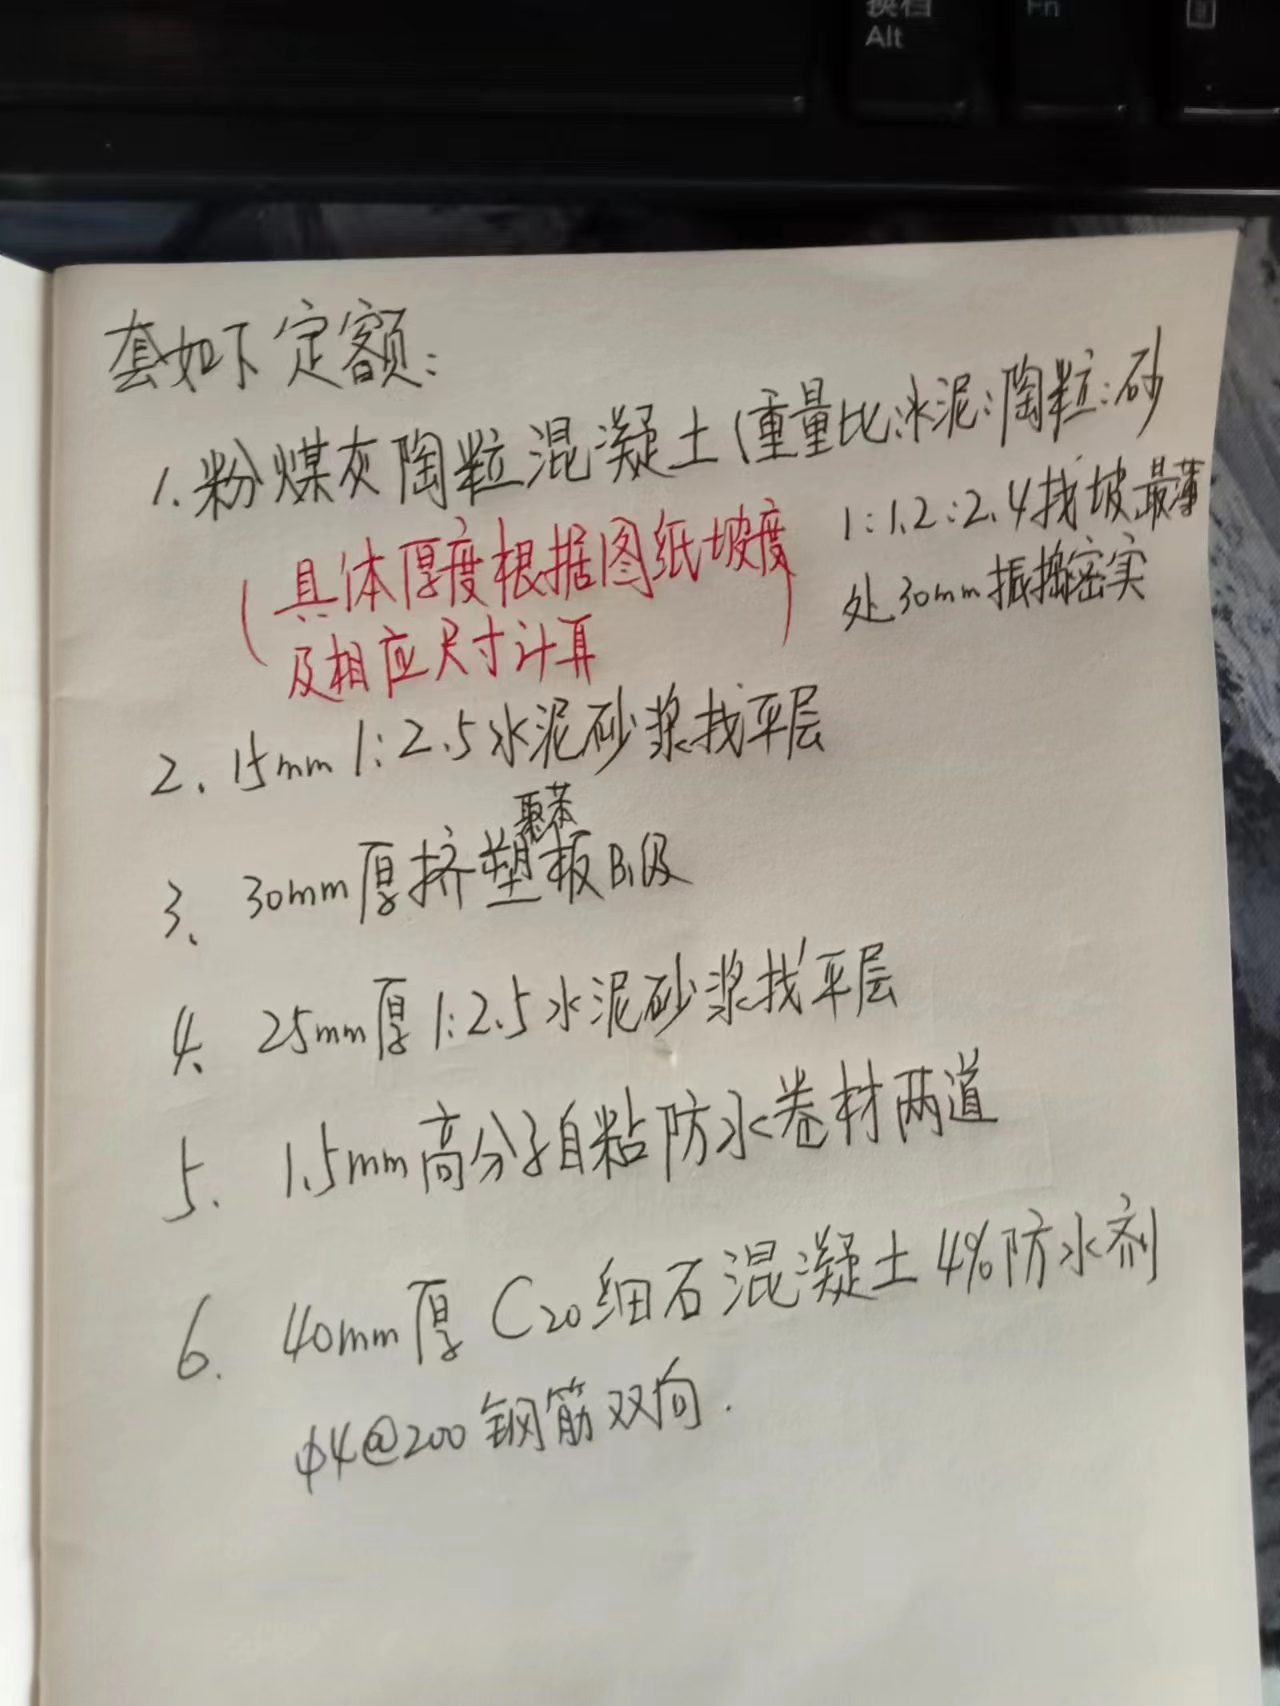 换档
Alt
Fn
套如下定额:
1.粉煤灰陶粒混凝土(重量比:水泥:陶粒:砂
1:1.2:2.4找坡最薄
处30mm振捣密实
(具体厚度根据图纸坡度
及相应尺寸计算)
2、15mm 1:2.5水泥砂浆找平层
3、30mm厚挤塑聚苯板B₁级
4、25mm厚1:2.5水泥砂浆找平层
5. 1.5mm高分子自粘防水卷材两道
6. 40mm厚 C20细石混凝土4%防水剂
φ4@200钢筋双向.